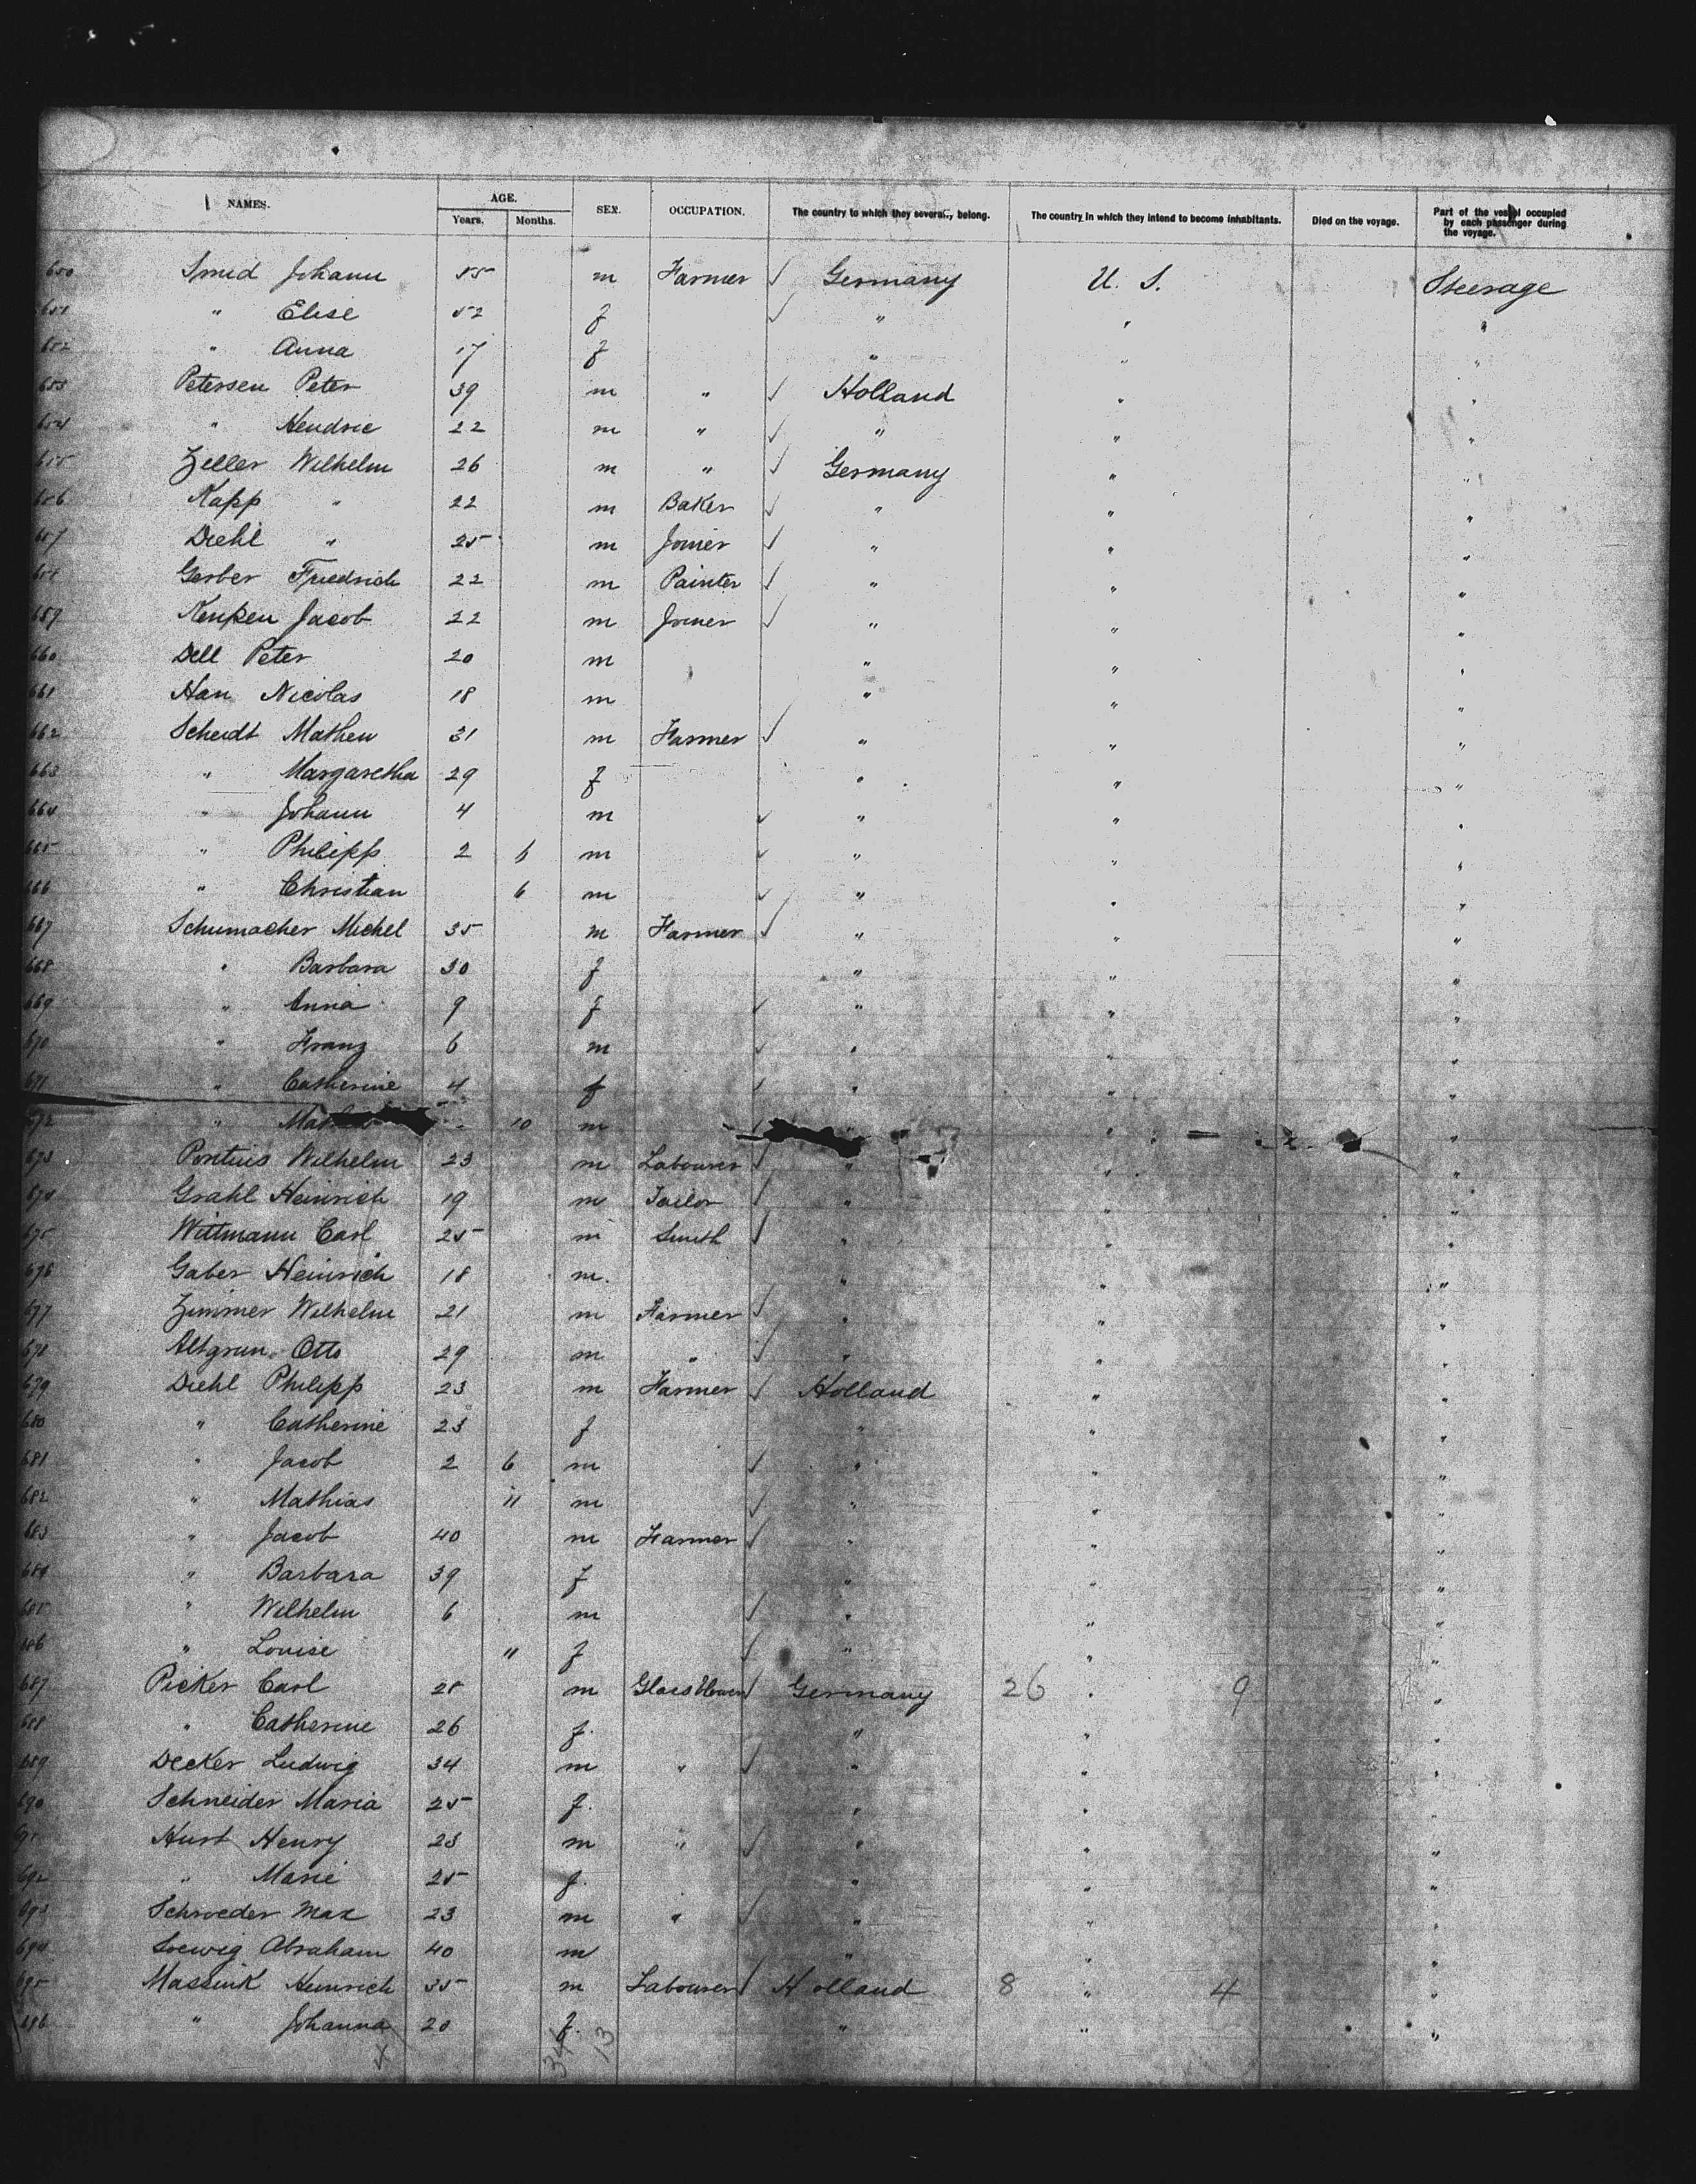 NAMES. AGE. Years. Months. SEX. OCCUPATION. The country to which they severally belong. The country in which they intend to become inhabitants. Died on the voyage. Part of the vessel occupied by each passenger during the voyage.
650 Smid Johann 55 m Farmer ✓ Germany U. S. Steerage
651 " Elise 52 f ✓ " " "
652 " Anna 17 f " " "
653 Petersen Peter 39 m " ✓ Holland " "
654 " Hendric 22 m " ✓ " " "
655 Zeller Wilhelm 26 m " ✓ Germany " "
656 Kapp " 22 m Baker ✓ " " "
657 Diehl " 25 m Joiner ✓ " " "
658 Gerber Friedrich 22 m Painter ✓ " " "
659 Kenken Jacob 22 m Joiner ✓ " " "
660 Dell Peter 20 m " " "
661 Han Nicolas 18 m " " "
662 Scheidt Mathew 31 m Farmer ✓ " " "
663 " Margaretha 29 f " " "
664 " Johann 4 m ✓ " " "
665 " Philipp 2 6 m ✓ " " "
666 " Christian 6 m ✓ " " "
667 Schumacher Michel 35 m Farmer ✓ " " "
668 " Barbara 30 f " " "
669 " Anna 9 f ✓ " " "
670 " Franz 6 m ✓ " " "
671 " Catherine 4 f ✓ " " "
672 " 10 m ✓ " "
673 Pontius Wilhelm 23 m Labourer ✓ " " "
674 Grahl Heinrich 19 m Tailor ✓ " " "
675 Wittmann Carl 25 m Smith ✓ " " "
676 Gaber Heinrich 18 m. " " "
677 Zimmer Wilhelm 21 m Farmer ✓ " " "
678 Altgrun Otto 29 m " ✓ " " "
679 Diehl Philipp 23 m Farmer ✓ Holland " "
680 " Catherine 23 f " " "
681 " Jacob 2 6 m ✓ " " "
682 " Mathias 11 m ✓ " " "
683 " Jacob 40 m Farmer ✓ " " "
684 " Barbara 39 f " " "
685 " Wilhelm 6 m ✓ " " "
686 " Louise 11 f ✓ " " "
687 Picker Carl 28 m Glassblower ✓ Germany 26 " 9 "
688 " Catherine 26 f. " " "
689 Decker Ludwig 34 m " ✓ " " "
690 Schneider Maria 25 f. " " "
691 Hurt Henry 23 m " ✓ " " "
692 " Marie 25 f. " " "
693 Schroeder Max 23 m " ✓ " " "
694 Loewig Abraham 40 m " " "
695 Massink Heinrich 35 m Labourer ✓ Holland 8 " 4 "
696 " Johanna 20 f. " " "
x 34 13